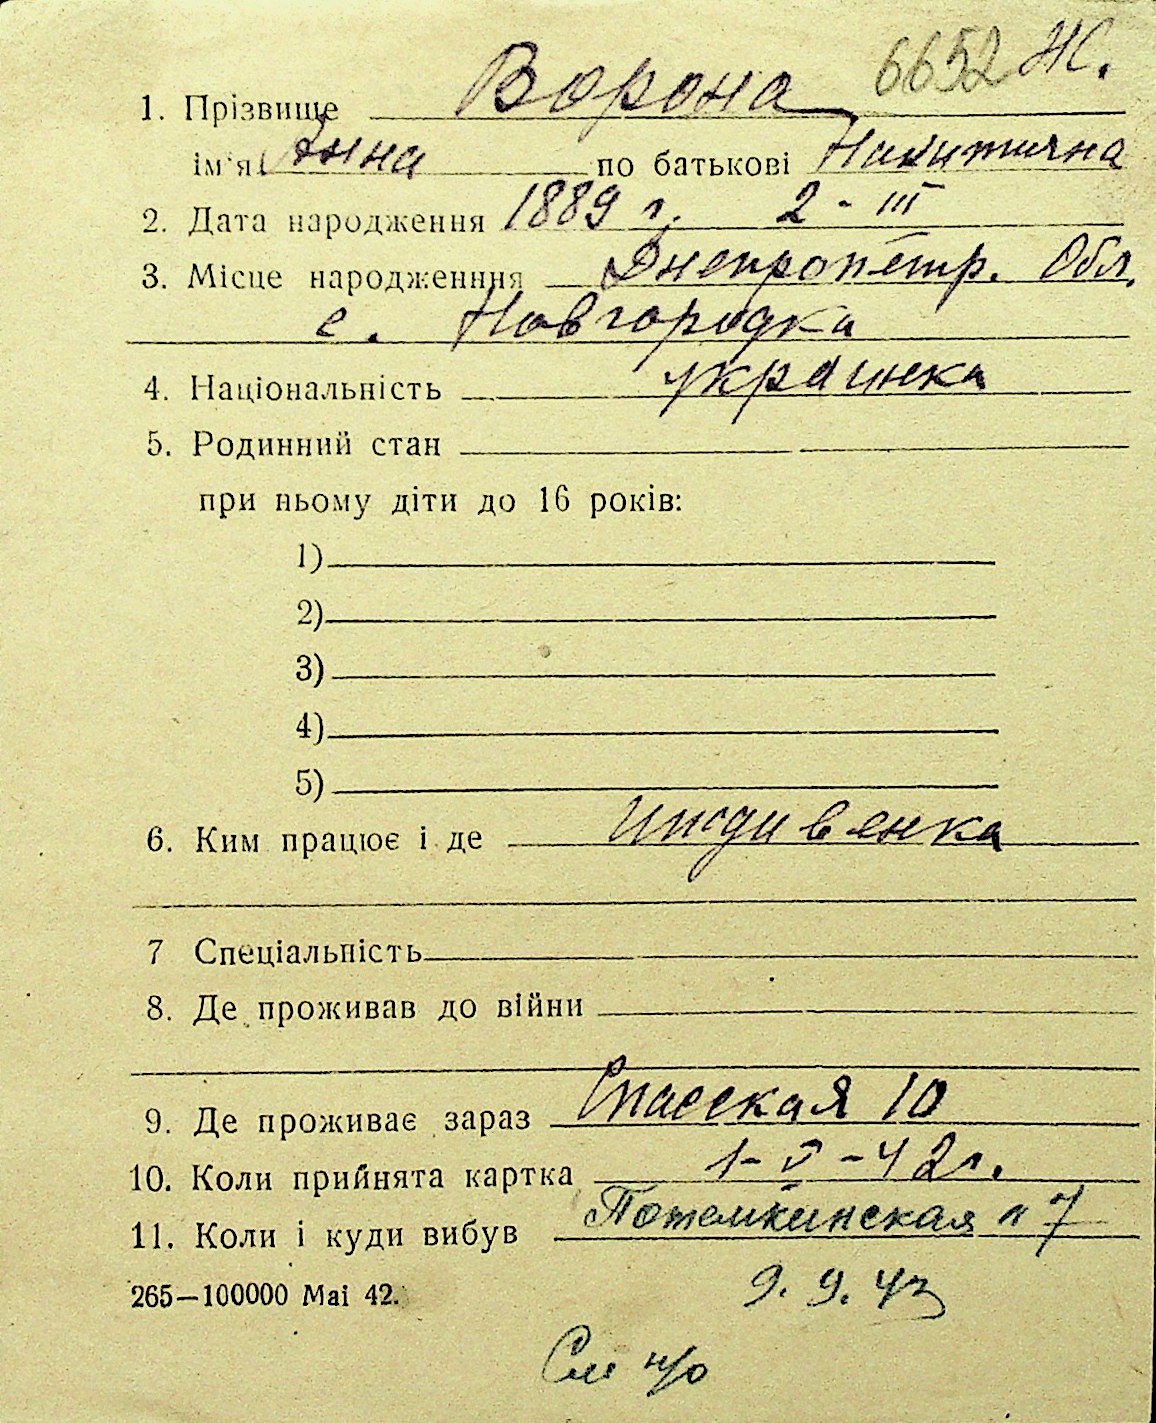 6652 Ж.
1. Прізвище Ворона
ім'я Анна по батькові Никитична
2. Дата народження 1889 г. 2 - III
3. Місце народженння Днепропетр. Обл.
с. Новгородка
4. Національність украинка
5. Родинний стан
при ньому діти до 16 років:
1)
2)
3)
4)
5)
6. Ким працює і де Иждивенка
7 Спеціальність
8. Де проживав до війни
9. Де проживає зараз Спасская 10
10. Коли прийнята картка 1-V-42г.
11. Коли і куди вибув Потемкинская 7
265—100000 Mai 42. 9. 9. 43
См н/о